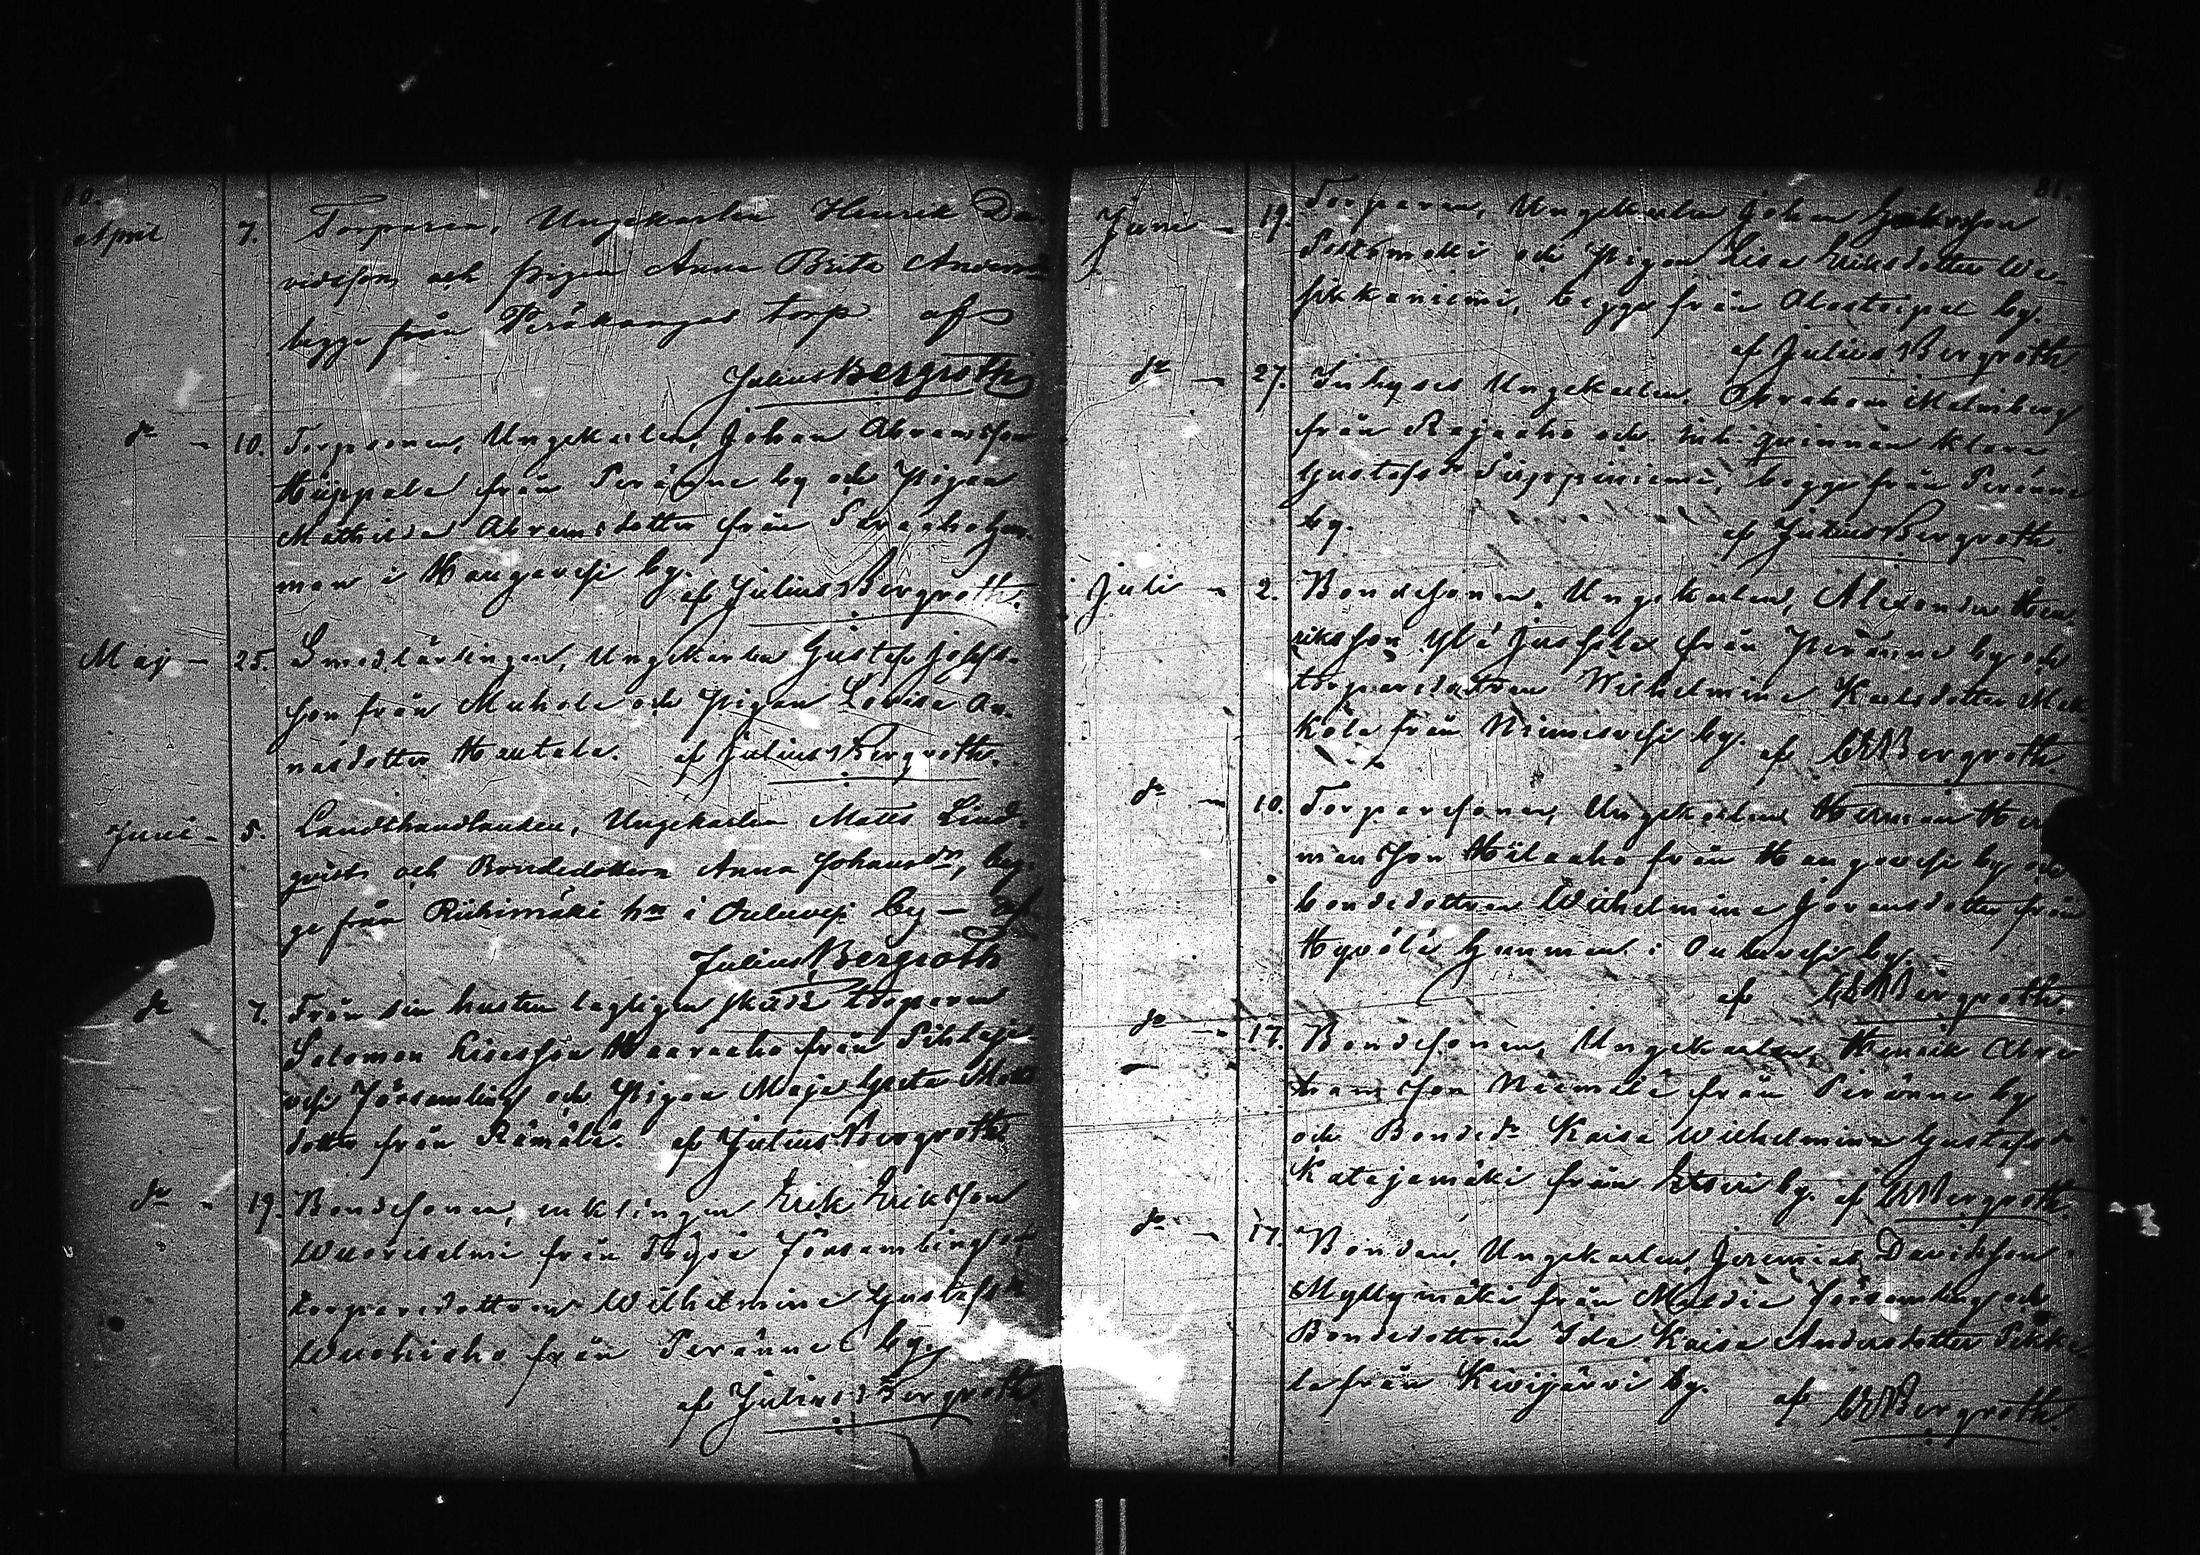 80.
April 7. Torparen, Ungekarlen Henrik Da-
vidsson och pigan Anna Brita Andersdr
begge från Peräkangas torp af
Julius Bergroth
do - 10. Torparen, Ungekarlen, Johan Abramsson
från Peränne by och Pigan
Mathilda Abramsdotter från
man i by. af Julius Bergroth.
Maj - 25. Smedlärlingen, Ungekarlen Gustaf Josefs-
son från Muhola och Pigan Lovisa An-
nasdotter Hautala. af Julius Bergroth.
Juni - 5. Landthandlanden, Ungekarlen Matts Lind-
qvist och Bondedottern Anna Johansdr, beg-
ge från Riihimäki hn i Ouluvesi by - af
Julius Bergroth
do 7. Från sin hustru lagligen skilde torparen
Salomon från Pihlaja-
vesi Församling och Pigan Maja Greta Matts
dotter från Rämälä. af Julius Bergroth
do - 19. Bondesonen, enklingen Erik Eriksson
Wuorisalmi från Församling och
torparedottren Wilhelmina Gustafsdr
från Peränne by.
af Julius Bergroth.
81.
Juni - 19. Torparen, Ungekarlen Johan
och Pigan Lisa Eriksdotter We-
hkaniemi, begge från by.
af Julius Bergroth.
do - 27. Inhyses Ungekarlen, Abraham Malmberg
från Rajaaho och inh. qvinnan Klara
Gustafsdr begge från Peränne
by. af Julius Bergroth.
Juli - 2. Bondesonen, Ungekarlen, Alexander Hen-
riksson Yli från Peränne by och
torparedottren Wilhelmina Karlsdotter Mak-
kola från Niemisvesi by. af Bergroth.
do - 10. Torparesonen, Ungekarlen Herman Her
mansson från by och
bondedottren Wilhelmina Joransdotter från
Hyvölä hemman i Ouluvesi by.
af Bergroth.
do - 17. Bondesonen, Ungekarlen, Henrik Abra
hamsson Niemelä från Peränne by
och Bondedr Kaisa Wilhelmina Gustafsdr
Katajamäki från Etseri by. af Bergroth.
do - 17. Bonden, Ungekarlen, Jeremias Davidsson
Myllymäki från Multia Församling och
Bondedottren Ida Kaisa Andersdotter Pekka-
la från Kivijärvi by. af Bergroth